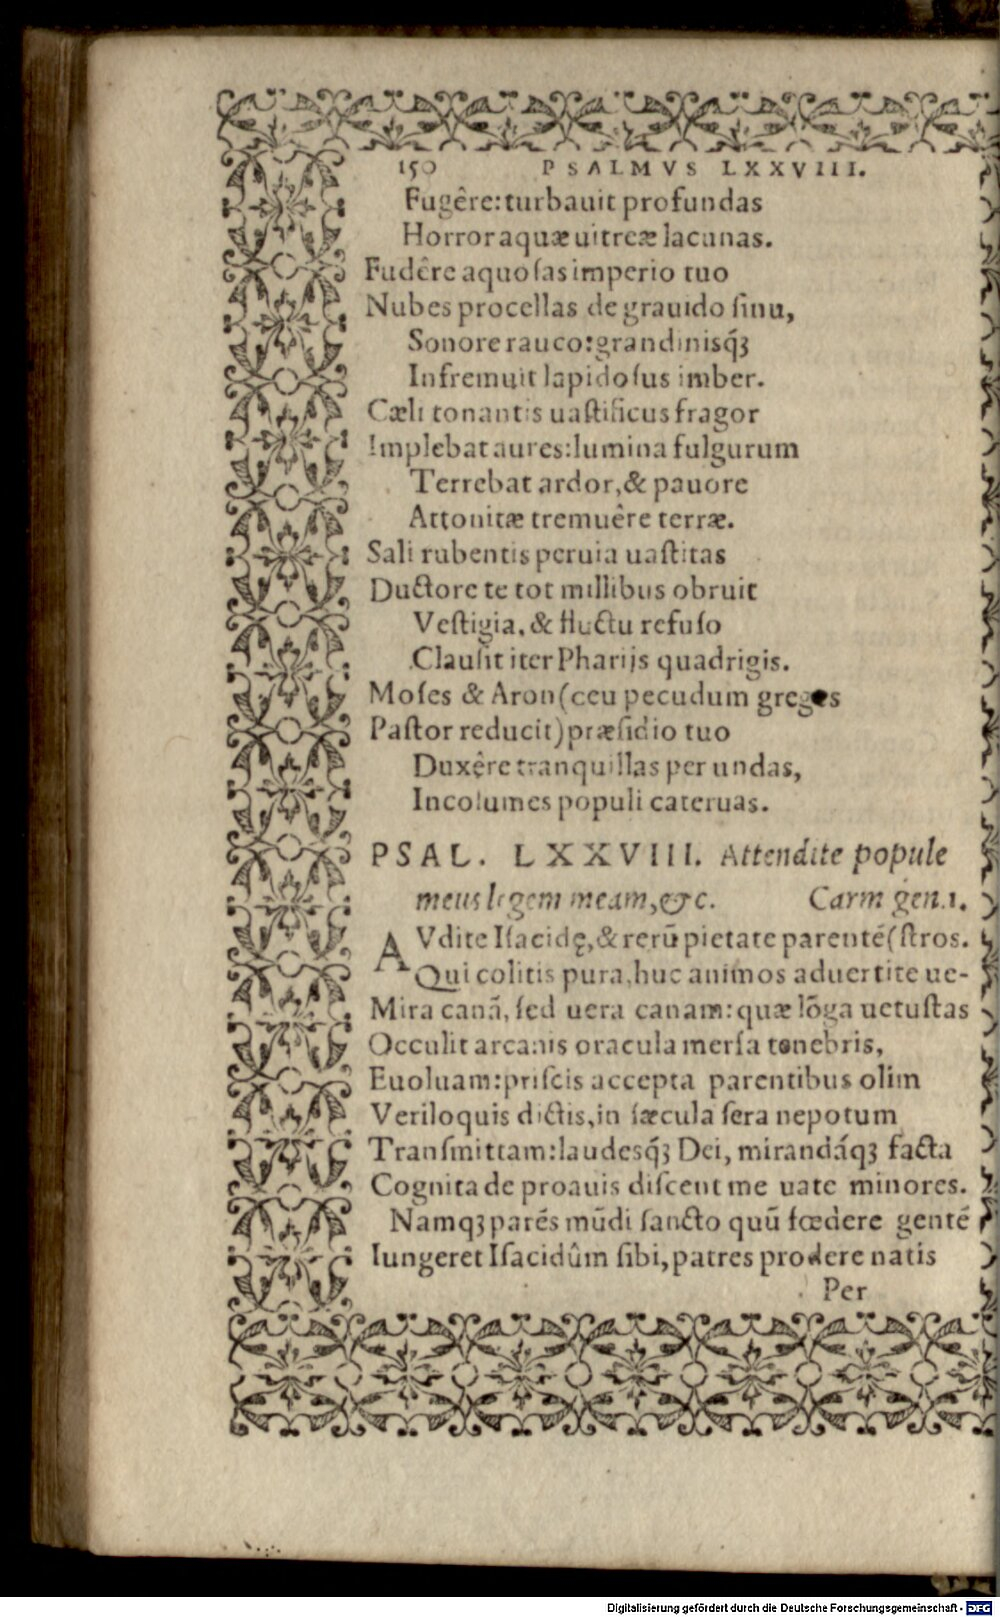 150 PSALMVS LXXVIII.
Fugêre: turbauit profundas
Horror aquæ uitreæ lacunas.
Fudêre aquoſas imperio tuo
Nubes procellas de grauido ſinu,
Sonore rauco: grandinisq́ꝫ
Infremuit lapidoſus imber.
Cæli tonantis uaſtificus fragor
Implebat aures: lumina fulgurum
Terrebat ardor, & pauore
Attonitæ tremuêre terræ.
Sali rubentis peruia uaſtitas
Ductore te tot millibus obruit
Veſtigia, & fluctu refuſo
Clauſit iter Pharijs quadrigis.
Moſes & Aron (ceu pecudum greges
Paſtor reducit) præſidio tuo
Duxêre tranquillas per undas,
Incolumes populi cateruas.
PSAL. LXXVIII. Attendite popule
meus legem meam, &c. Carm gen. 1.
AVdite Iſacidę, & rerũ pietate parentẽ (ſtros.
Qui colitis pura, huc animos aduertite ue-
Mira canã, ſed uera canam: quæ lõga uetuſtas
Occulit arcanis oracula merſa tenebris,
Euoluam: priſcis accepta parentibus olim
Veriloquis dictis, in ſæcula ſera nepotum
Tranſmittam: laudesq́ꝫ Dei, mirandáqꝫ facta
Cognita de proauis diſcent me uate minores.
Namqꝫ parẽs mũdi ſancto quũ fœdere gentẽ
Iungeret Iſacidûm ſibi, patres prodere natis
Per
Digitalisierung gefördert durch die Deutsche Forschungsgemeinschaft - DFG